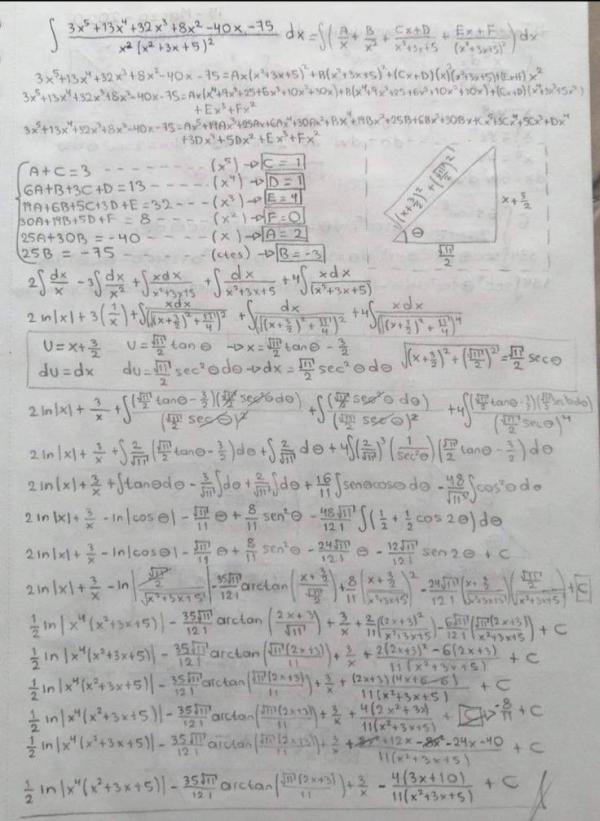 ∫ (3x⁵+13x⁴+32x³+8x²-40x-75)/(x²(x²+3x+5)²) dx = ∫(A/x + B/x² + (Cx+D)/(x²+3x+5) + (Ex+F)/(x²+3x+5)²) dx
3x⁵+13x⁴+32x³+8x²-40x-75 = Ax(x²+3x+5)²+B(x²+3x+5)²+(Cx+D)(x²)(x²+3x+5)+(Ex+F)x²
3x⁵+13x⁴+32x³+8x²-40x-75=Ax(x⁴+9x²+25+6x³+10x²+30x)+B(x⁴+9x²+25+6x³+10x²+30x)+(Cx+D)(x⁴+3x³+5x²)
+Ex³+Fx²
3x⁵+13x⁴+32x³+8x²-40x-75=Ax⁵+19Ax³+25Ax+6Ax⁴+30Ax²+Bx⁴+19Bx²+25B+6Bx³+30Bx+Cx⁵+3Cx⁴+5Cx³+Dx⁴
+3Dx³+5Dx²+Ex³+Fx²
A+C=3 ------- (x⁵) → C=1
6A+B+3C+D=13 ---- (x⁴) → D=1
19A+6B+5C+3D+E=32 --- (x³) → E=4
30A+19B+5D+F=8 ---- (x²) → F=0
25A+30B=-40 ---- (x) → A=2
25B=-75 ------ (ctes) → B=-3
√((x+3/2)²+(√11/2)²)
x+3/2
θ
√11/2
2∫dx/x -3∫dx/x² +∫xdx/(x²+3x+5) +∫dx/(x²+3x+5) +4∫xdx/(x²+3x+5)
2ln|x|+3(1/x)+∫xdx/(√((x+3/2)²+√11/4))² +∫dx/(√((x+3/2)²+√11/4))² +4∫xdx/(√((x+3/2)²+√11/4))⁴
U=x+3/2 U=√11/2 tanθ → x=√11/2 tanθ - 3/2 √((x+3/2)²+(√11/2)²)=√11/2 secθ
du=dx du=√11/2 sec²θdθ → dx=√11/2 sec²θdθ
2ln|x|+3/x+∫(√11/2 tanθ-3/2)(√11/2 sec²θdθ)/(√11/2 secθ)² +∫(√11/2 sec²θdθ)/(√11/2 secθ)² +4∫(√11/2 tanθ-3/2)(√11/2 sec²θdθ)/(√11/2 secθ)⁴
2ln|x|+3/x+∫2/√11(√11/2 tanθ-3/2)dθ+∫2/√11 dθ+4∫(2/√11)³(1/sec²θ)(√11/2 tanθ-3/2)dθ
2ln|x|+3/x+∫tanθdθ-3/√11∫dθ+2/√11∫dθ+16/11∫senθcosθdθ-48/√11³∫cos²θdθ
2ln|x|+3/x-ln|cosθ|-√11/11 θ+8/11 sen²θ-48√11/121∫(1/2+1/2 cos2θ)dθ
2ln|x|+3/x-ln|cosθ|-√11/11 θ+8/11 sen²θ-24√11/121 θ-12√11/121 sen2θ+C
2ln|x|+3/x-ln|(√11/2)/√(x²+3x+5)|-35√11/121 arctan((x+3/2)/(√11/2))+8/11((x+3/2)/√(x²+3x+5))²-24√11/121((x+3/2)/√(x²+3x+5))((√11/2)/√(x²+3x+5))+C
1/2 ln|x⁴(x²+3x+5)|-35√11/121 arctan((2x+3)/√11)+3/x+2/11((2x+3)²/(x²+3x+5))-6√11/121(√11(2x+3)/(x²+3x+5))+C
1/2 ln|x⁴(x²+3x+5)|-35√11/121 arctan(√11(2x+3)/11)+3/x+(2(2x+3)²-6(2x+3))/(11(x²+3x+5))+C
1/2 ln|x⁴(x²+3x+5)|-35√11/121 arctan(√11(2x+3)/11)+3/x+(2x+3)(4x+6-6)/(11(x²+3x+5))+C
1/2 ln|x⁴(x²+3x+5)|-35√11/121 arctan(√11(2x+3)/11)+3/x+4(2x²+3x)/(11(x²+3x+5))+C → -8/11+C
1/2 ln|x⁴(x²+3x+5)|-35√11/121 arctan(√11(2x+3)/11)+3/x+(8x²+12x-8x²-24x-40)/(11(x²+3x+5))+C
1/2 ln|x⁴(x²+3x+5)|-35√11/121 arctan(√11(2x+3)/11)+3/x-4(3x+10)/(11(x²+3x+5))+C